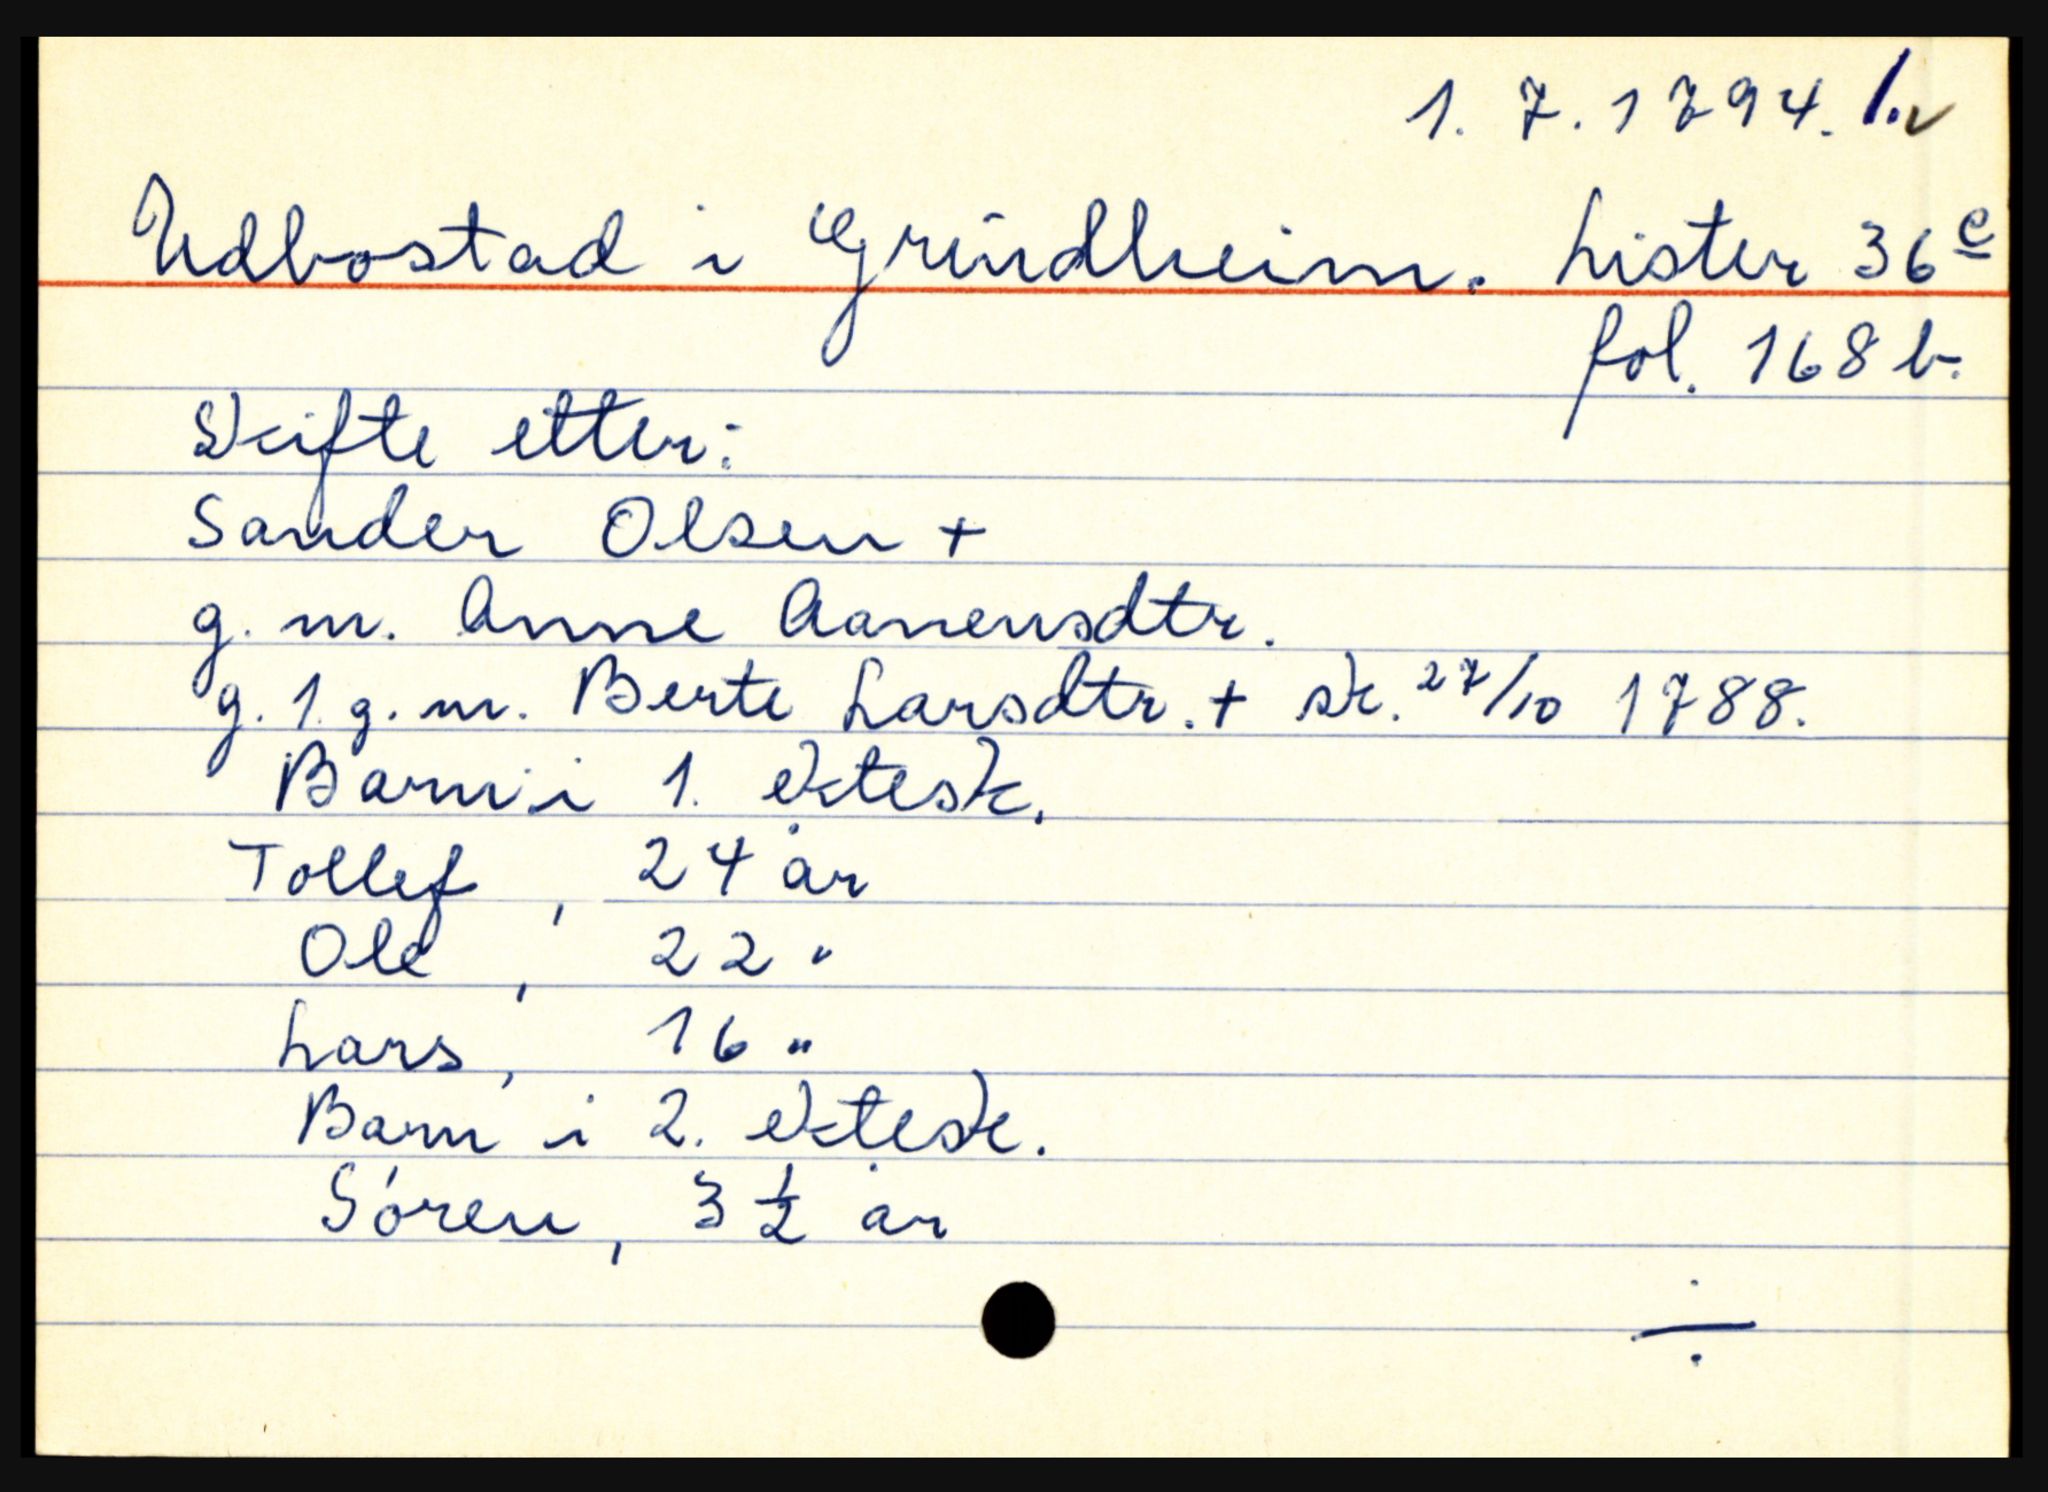 1. 7. 1794. 1. v
Udbostad i Grindheim. Lister 36 c
fol. 168 b.
Skifte etter:
Sander Olsen +
g. m. Anne Aanensdtr.
g. 1. g. m. Berte Larsdtr. + sk. 27/10 1788.
Barn i 1. ektesk.
Tollef, 24 år
Ole, 22 "
Lars, 16 "
Barn i 2. ektesk.
Sören, 3 1/2 år
÷